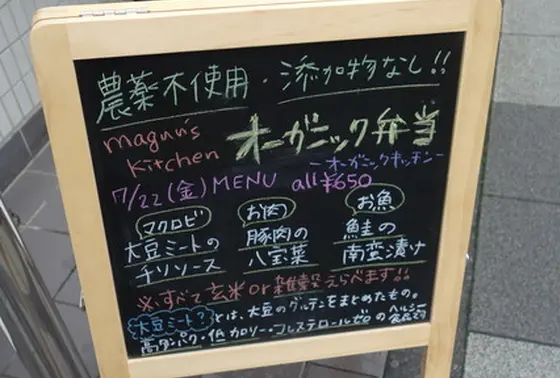 農薬不使用・添加物なし!!
magun's Kitchen オーガニック弁当
ーオーガニックキッチンー
7/22(金)MENU all¥650
マクロビ お肉 お魚
大豆ミートの 豚肉の 鮭の
チリソース 八宝菜 南蛮漬け
※すべて玄米or雑穀えらべます!!
大豆ミート?とは、大豆のグルテンをまとめたもの。
高タンパク・低カロリー・コレステロールゼロのヘルシー